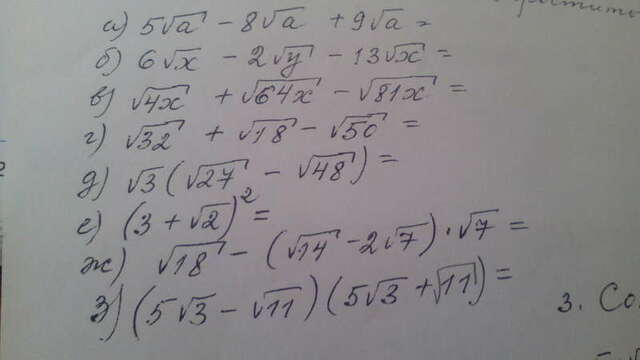 а) 5√a - 8√a + 9√a =
б) 6√x - 2√y - 13√x =
в) √4x + √64x - √81x =
г) √32 + √18 - √50 =
д) √3(√27 - √48) =
е) (3 + √2)² =
ж) √18 - (√14 - 2√7)·√7 =
з) (5√3 - √11)(5√3 + √11) =
3. Со